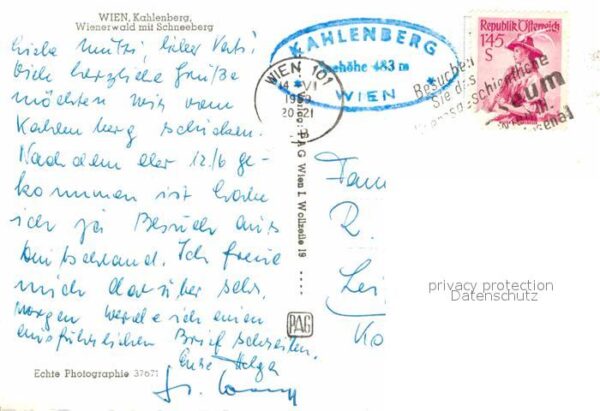 WIEN, Kahlenberg,
Wienerwald mit Schneeberg
Liebe Mutti, lieber Vati!
Viele herzliche Grüße
möchten wir vom
Kahlenberg schicken.
Nachdem der 12/6 ge-
kommen ist habe
ich ja Besuch aus
Deutschland. Ich freue
mich darüber sehr.
Morgen werde ich einen
ausführlichen Brief schreiben.
Eure Helga
Echte Photographie 37671
KAHLENBERG
Seehöhe 483 m
WIEN
WIEN 101
14 VI
1959
20 21
Besuchen
Sie das
Heeresgeschichtliche
Museum
Arsenal
Republik Österreich
1.45
S
Verlag: PAG Wien I, Wollzeile 19
PAG
Fam
R.
Lei
Ko
privacy protection
Datenschutz